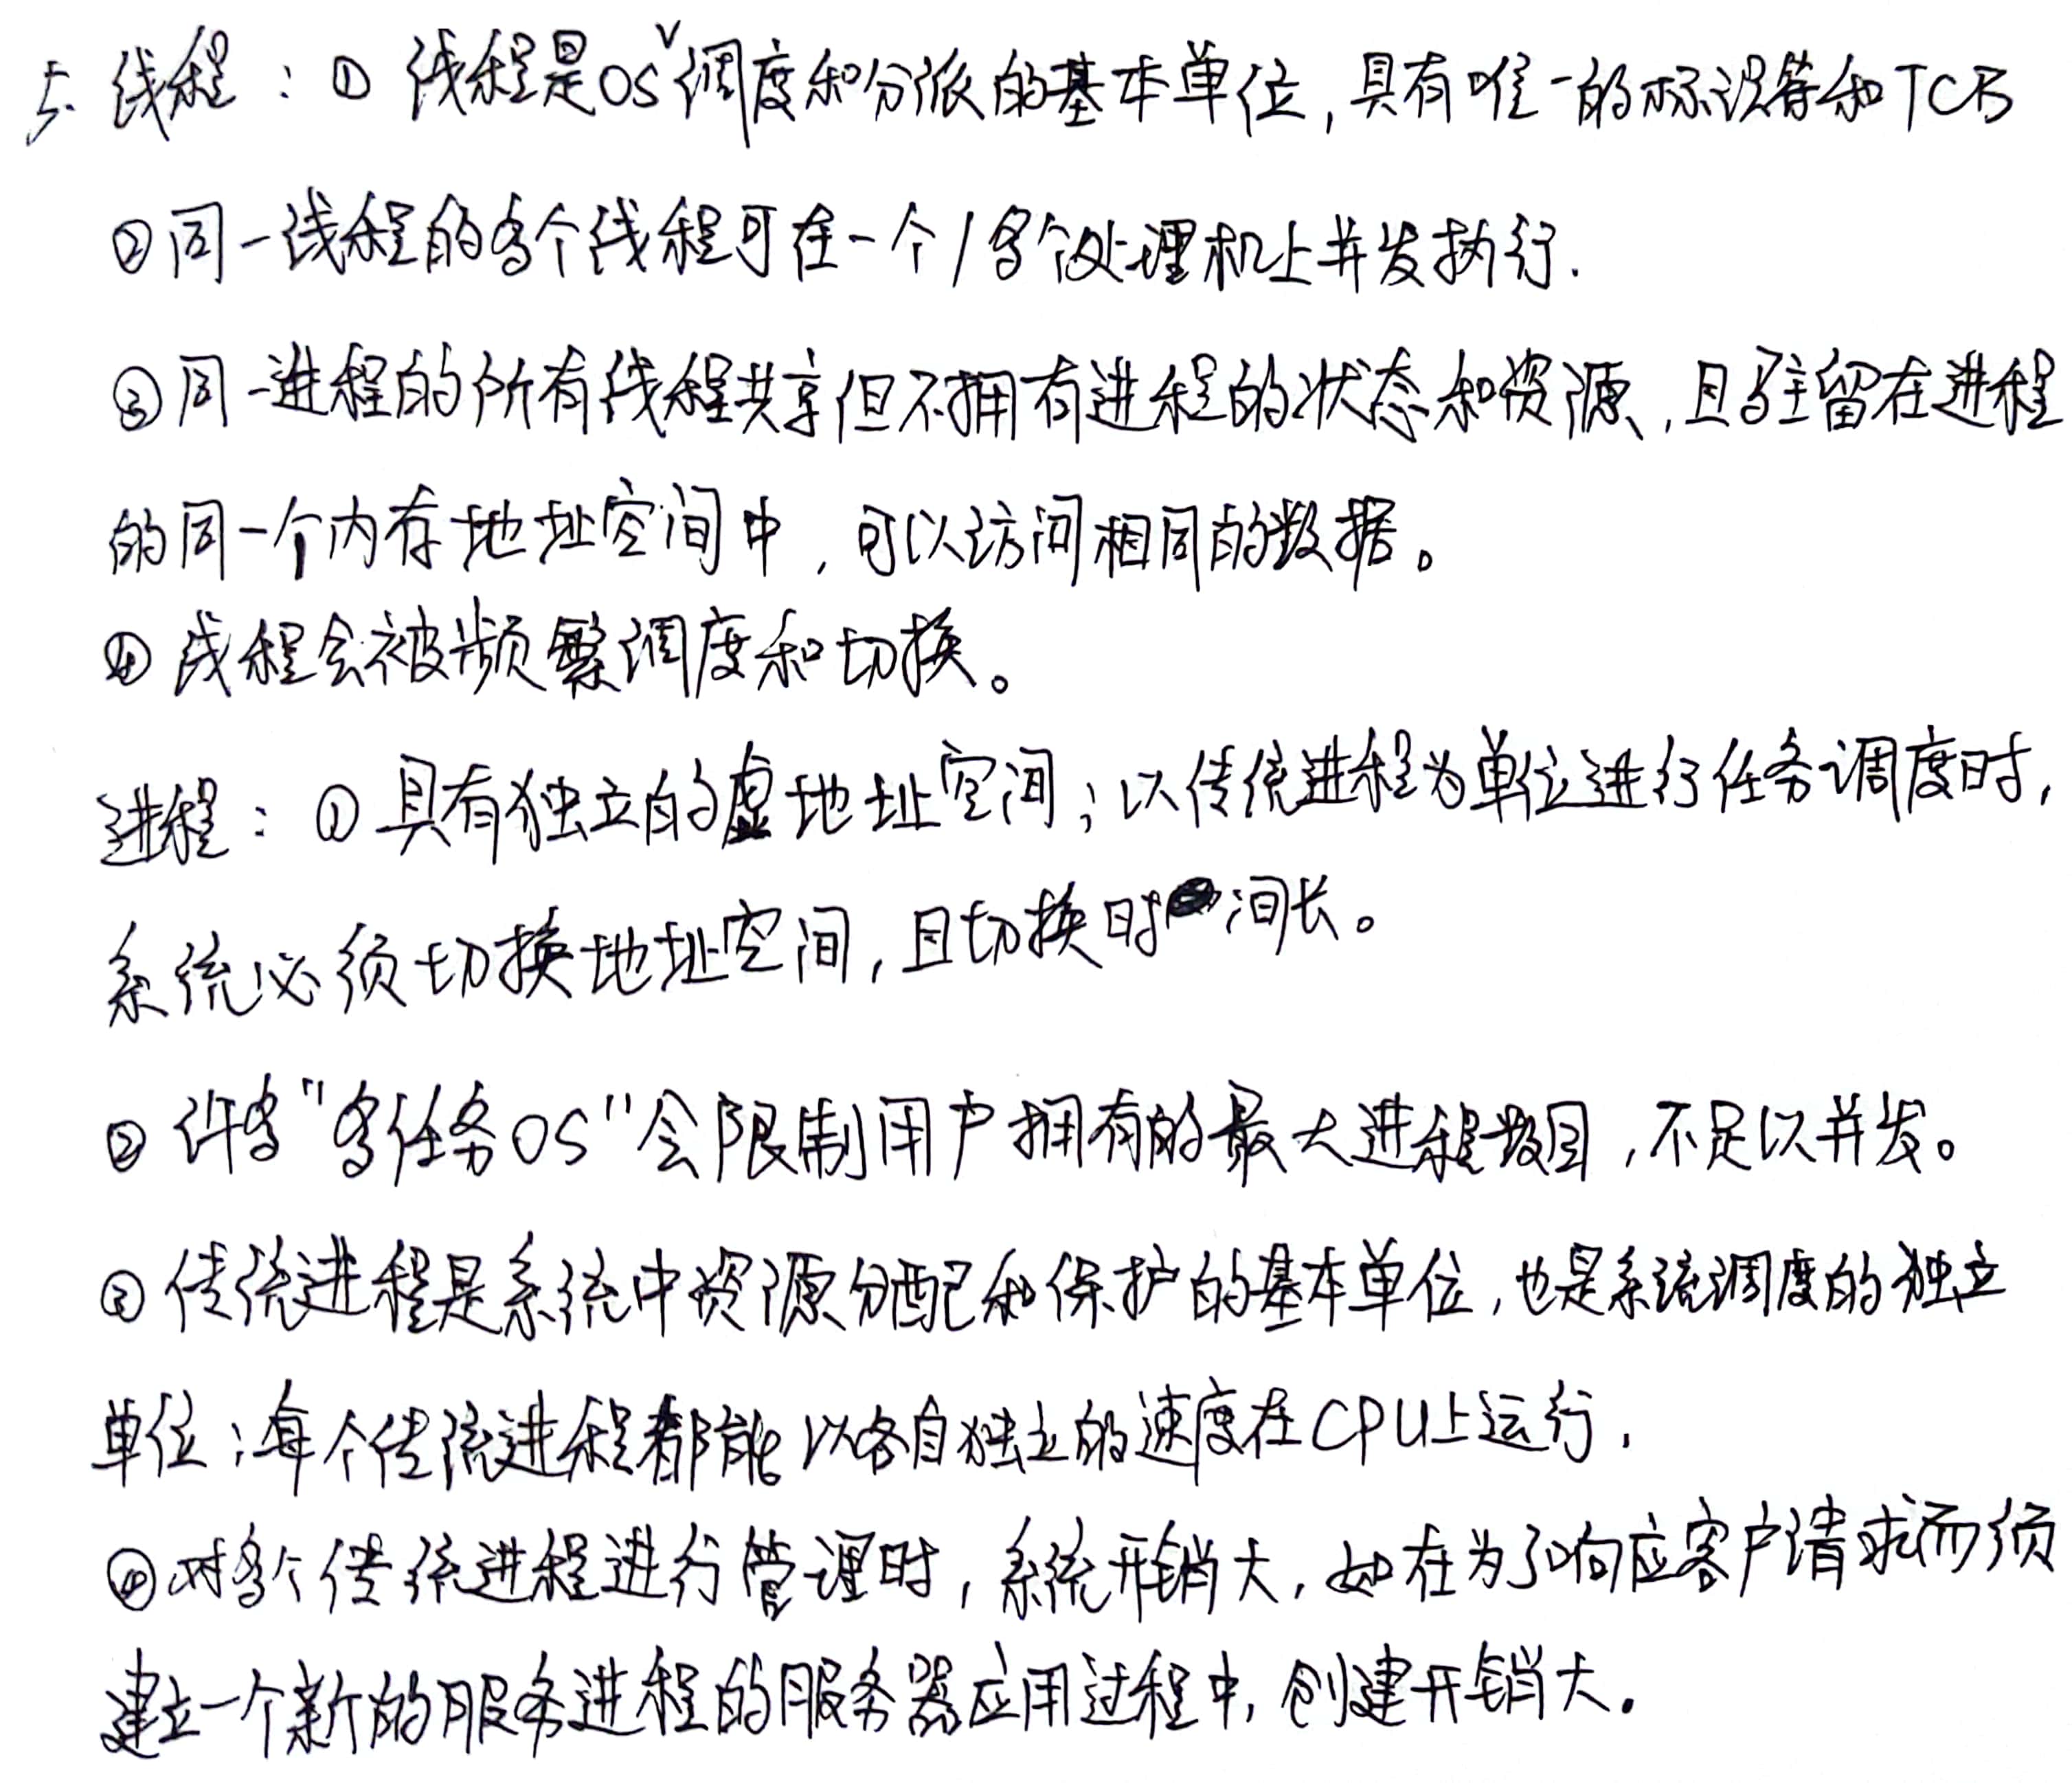 5. 线程：① 线程是OS调度和分派的基本单位，具有唯一的标识符和TCB
②同一线程的多个线程可在一个/多个处理机上并发执行.
③同一进程的所有线程共享但不拥有进程的状态和资源，且驻留在进程
的同一个内存地址空间中，可以访问相同的数据。
④ 线程会被频繁调度和切换。
进程：① 具有独立的虚地址空间；以传统进程为单位进行任务调度时，
系统必须切换地址空间，且切换时间长。
② 许多"多任务OS"会限制用户拥有的最大进程数目，不足以并发。
③ 传统进程是系统中资源分配和保护的基本单位，也是系统调度的独立
单位；每个传统进程都能以各自独立的速度在CPU上运行.
④对多个传统进程进行管理时，系统开销大，如在为了响应客户请求而须
建立一个新的服务进程的服务器应用过程中，创建开销大。